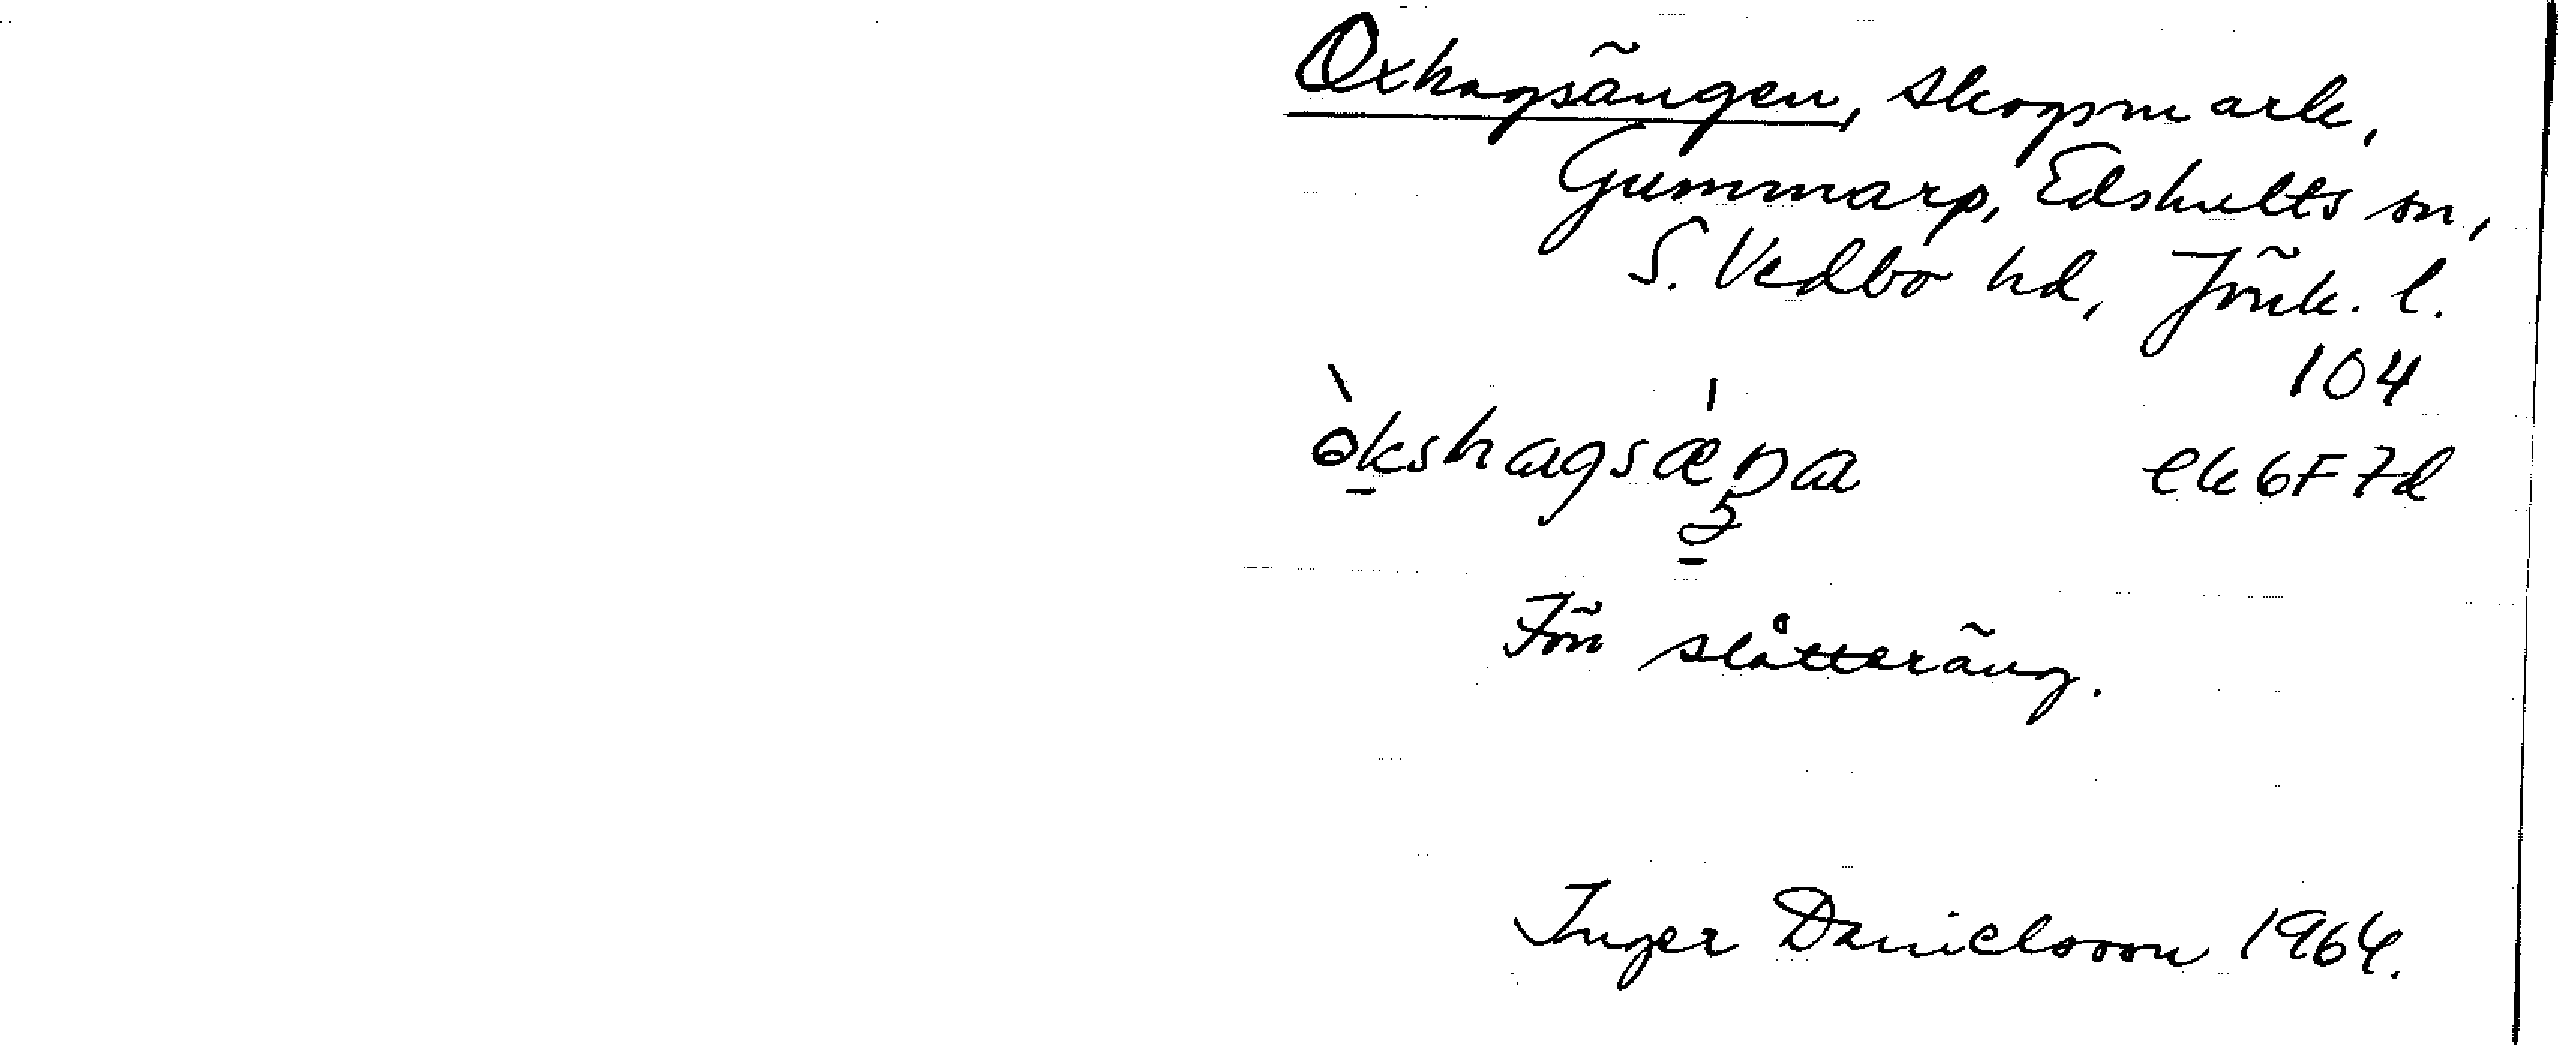 Oxhagsängen, skogsmark,
Gummarp, Edshults sn,
S. Vedbo hd, Jönk. l.
104
òkshagsæ̀ŋa ek 6F 7d
Förr slåtteräng.
Inger Danielsson 1964.